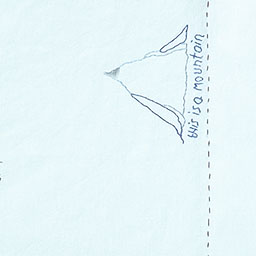 this is a mountain